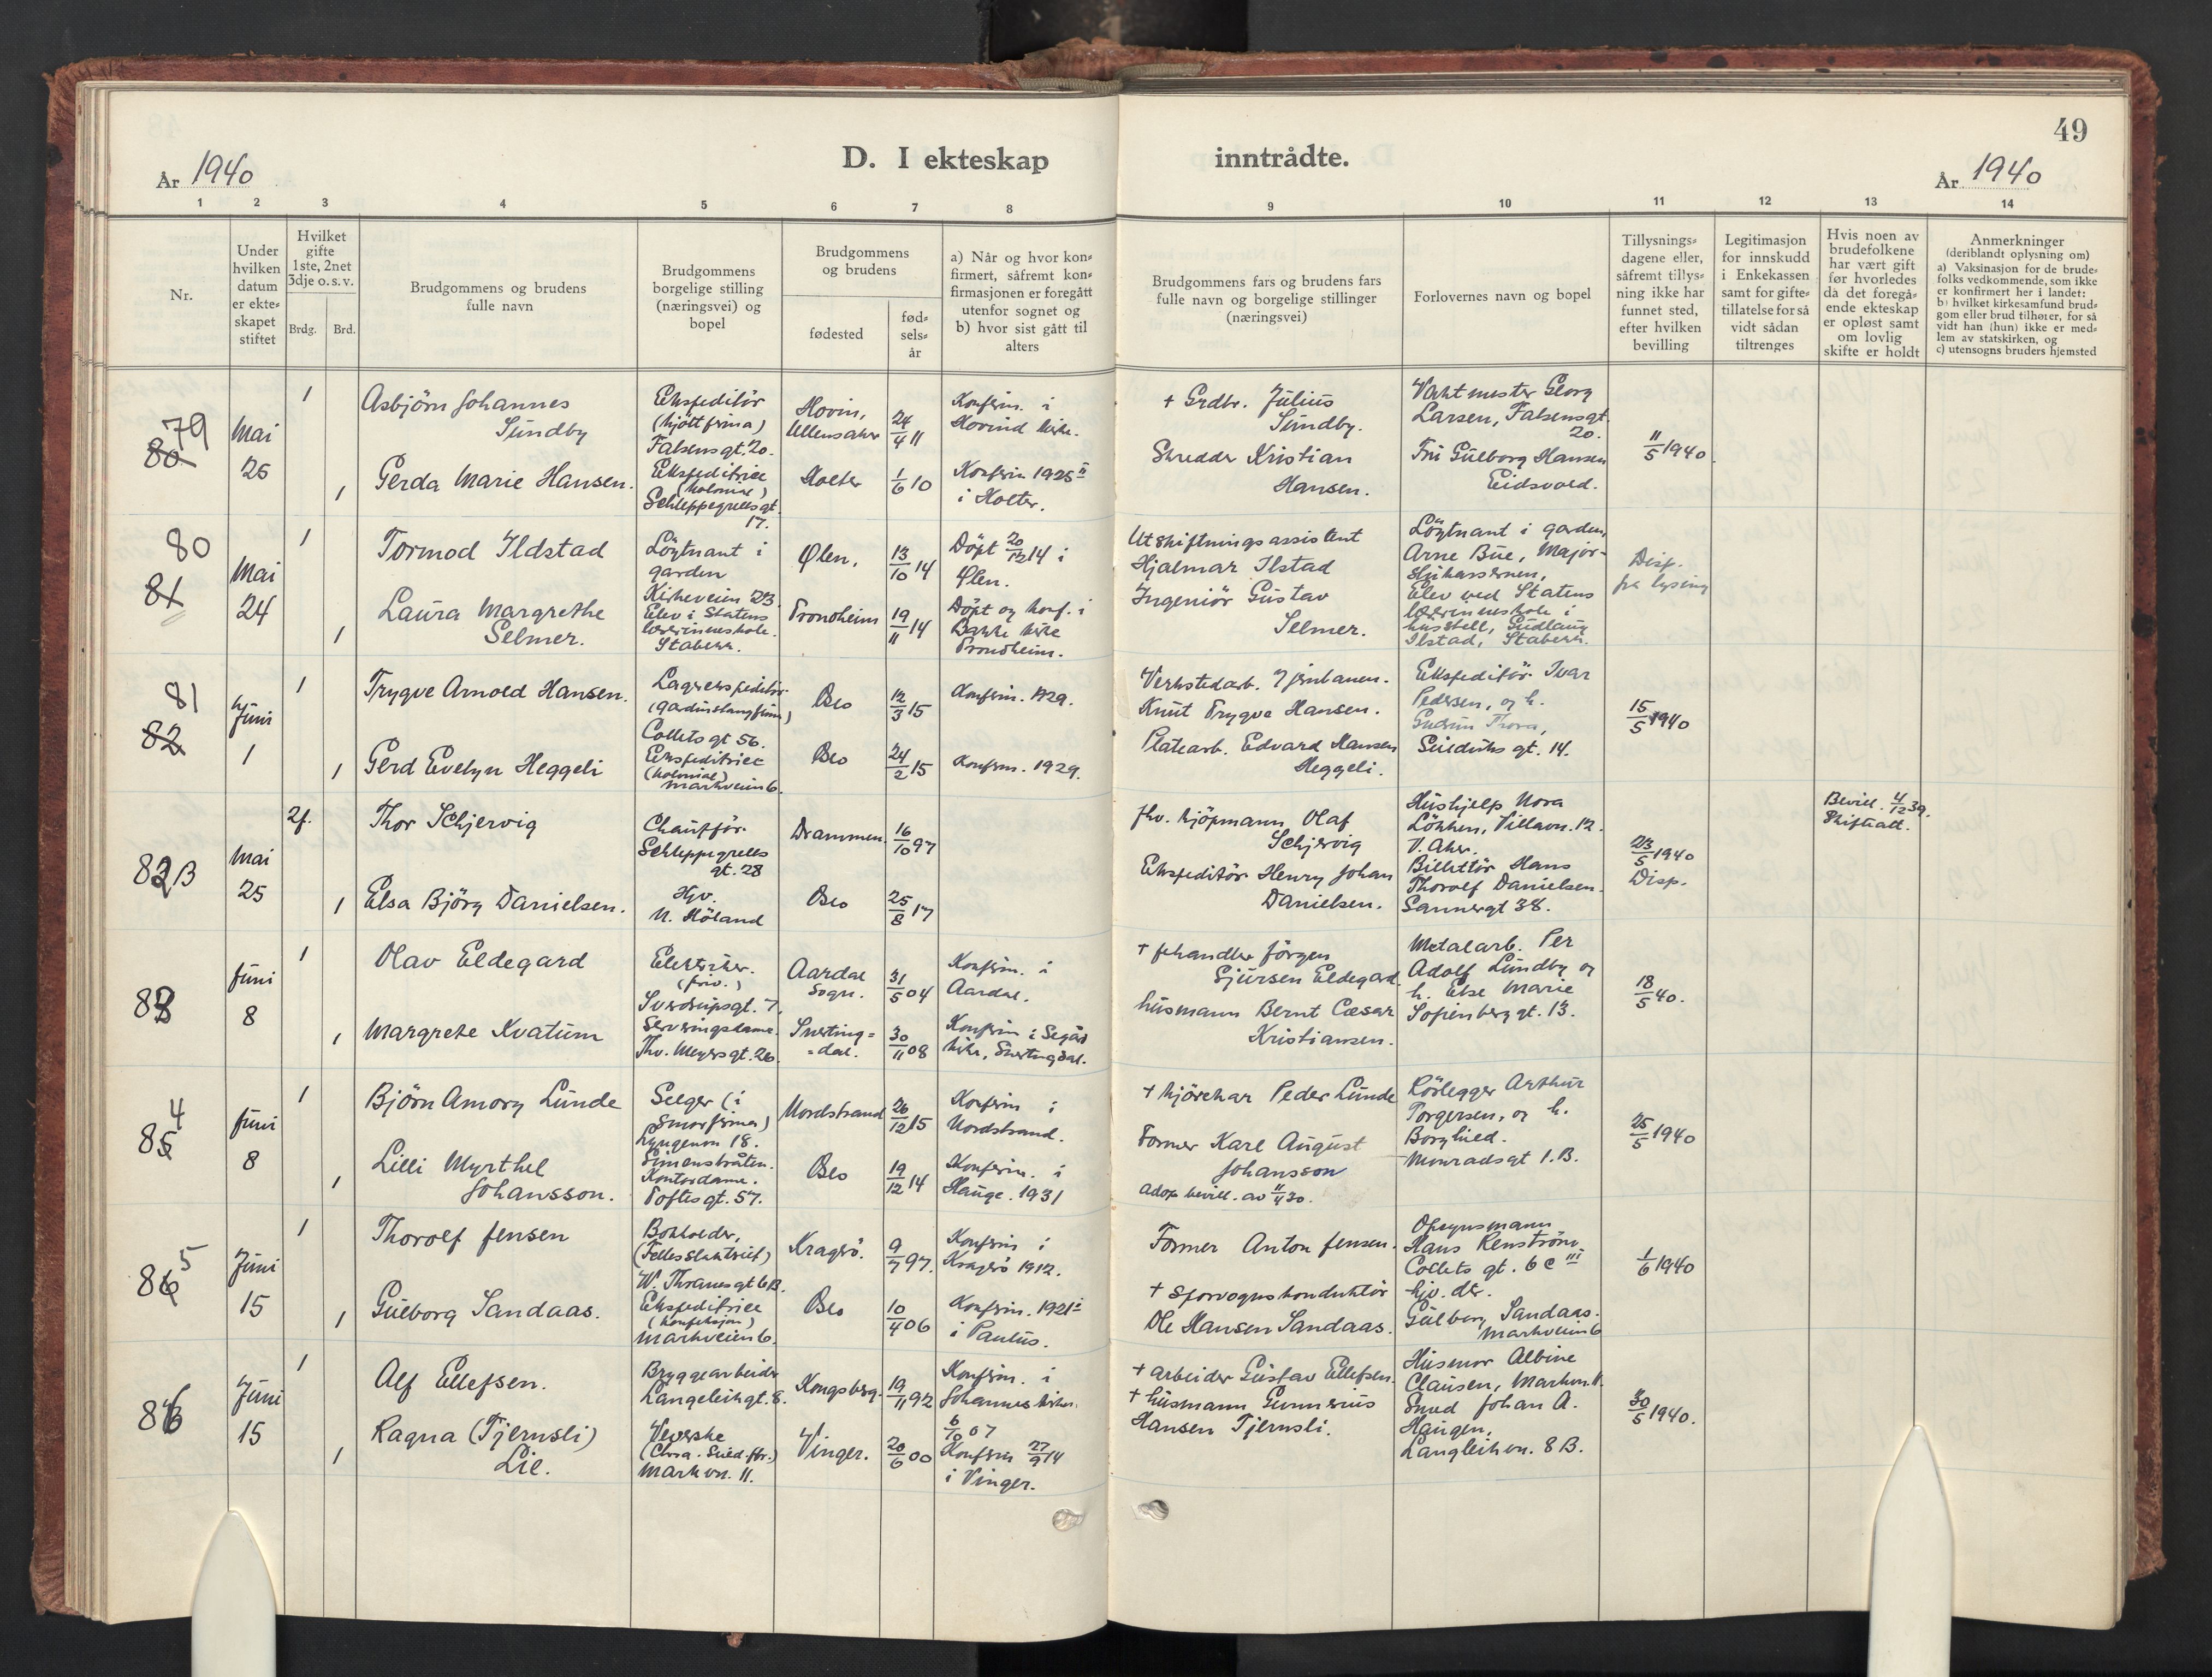 49
D. I ekteskap inntrådte.
År 1940
År 1940
1 2 3 4 5 6 7 8 9 10 11 12 13 14
Nr.
Under
hvilken
datum
er ekte-
skapet
stiftet
Hvilket
gifte
1ste, 2net
3dje o.s.v.
Brdg. Brd.
Brudgommens og brudens
fulle navn
Brudgommens
borgelige stilling
(næringsvei) og
bopel
Brudgommens
og brudens
fødested
fød-
sels-
år
a) Når og hvor kon-
firmert, såfremt kon-
firmasjonen er foregått
utenfor sognet og
b) hvor sist gått til
alters
Brudgommens fars og brudens fars
fulle navn og borgelige stillinger
(næringsvei)
Forlovernes navn og bopel
Tillysnings-
dagene eller,
såfremt tillys-
ning ikke har
funnet sted,
efter hvilken
bevilling
Legitimasjon
for innskudd
i Enkekassen
samt for gifte-
tillatelse for så
vidt sådan
tiltrenges
Hvis noen av
brudefolkene
har vært gift
før hvorledes
da det foregå-
ende ekteskap
er opløst samt
om lovlig
skifte er holdt
Anmerkninger
(deriblandt oplysning om)
a) Vaksinasjon for de brude-
folks vedkommende, som ikke
er konfirmert her i landet:
b) hvilket kirkesamfund brud-
gom eller brud tilhører, for så
vidt han (hun) ikke er med-
lem av statskirken, og
c) utensogns bruders hjemsted
79
80
Mai
26
1
Asbjörn Johannes
Sundby
Ekspeditör
(kjöttfirma)
Falsensgt. 20.
Hovin,
Ullensaker
24/4 11
Konfirm. i
Hovind kirke.
+ Grdbr. Julius
Sundby.
Vaktmester Georg
Larsen, Falsensgt.
20.
11/5 1940.
1
Gerda Marie Hansen.
Ekspeditrice
(kolonial)
Schleppegrellsgt.
17.
Holter
1/6 10
Konfirm 1925 II
i Holter.
Skredder Kristian
Hansen.
Frü Gulborg Hansen
Eidsvold.
80
81
Mai
24
1
Tormod Ildstad
Löytnant i
garden
Kirkeveien 23
Ølen.
13/10 14
Döpt 20/12 14 i
Ølen.
Utskiftningsassistent
Hjalmar Ilstad
Löytnant i garden,
Arne Bue, Major-
stukasernen,
Disp.
fra lysing
1
Laura Margrethe
Selmer.
Elev i Statens
lærerinneskole.
Stabekk.
Trondheim
19/11 14
Döpt og konf. i
Bakke kirke
Trondheim.
Ingeniör Gustav
Selmer.
Elev ved Statens
lærerinneskole i
husstell, Gudlaug
Ilstad, Stabekk.
81
82
Juni
1
1
Trygve Arnold Hansen.
Lagerekspeditör
(gardinstangfirma)
Colletsgt 56.
Oslo
12/3 15
Konfirm. 1929.
Verkstedarb. Jernbanen.
Knut Trygve Hansen.
Ekspeditör Ivar
Pedersen, og h.
Gudrun Thora,
15/5 1940
1
Gerd Evelyn Heggeli
Ekspeditrice
(kolonial)
Markveien 6.
Oslo
24/2 15
Konfirm. 1929.
Platearb. Edvard Hansen
Heggeli.
gt. 14.
82B
Mai
25
2f.
Thor Schjervig
Chaufför
Schleppegrells
gt. 28
Drammen.
16/10 97
fhv. kjöpmann Olaf
Schjervig
Hushjelp Nora
Lökken, Villavn. 12.
V. Aker.
23/5 1940
Disp.
Bevill. 4/12 39.
Skifteatt.
1
Elsa Björg Danielsen.
Hjv.
N. Höland
Oslo
25/8 17
Ekspeditör Henry Johan
Danielsen.
Billettör Hans
Thorolf Danielsen.
Sannergt 38.
83
Juni
8
1
Olav Eldegard
Elektriker.
(priv.)
Sverdrupsgt. 7.
Aardal
Sogn.
31/5 04
Konfirm. i
Aardal.
+ fehandler Jörgen
Sjursen Eldegard.
Metalarb. Per
Adolf Lundby og
h. Else Marie
Sofienberggt. 13.
18/5 40.
1
Margrete Kvatum
Serveringsdame.
Thv. Meyersgt. 26.
Snerting-
=dal.
30/11 08
Konfirm i Segård
kirke, Snertingdal.
husmann Bernt Cæsar
Kristiansen.
84
85
Juni
8
1
Björn Amory Lunde
Selger (i
Smörfirma)
Lyngenvn 18.
Simensbråten.
Nordstrand
26/12 15
Konfirm i
Nordstrand.
+ kjörekar Peder Lunde
Rörlegger Arthur
Torgersen, og h.
Borghild.
Monradsgt 1. B.
25/5 1940
1
Lilli Myrthel
Johansson.
Kontordame.
Toftesgt. 57.
Oslo
19/12 14
Konfirm. i
Hauge. 1931
Former Karl August
Johansson
adop. bevill. av 11/4 30.
85
86
Juni
15
1
Thorolf Jensen
Bokholder,
(Fellesslakteriet)
W. Thranesgt 6B.
Kragerö.
9/7 97.
Konfirm i
Kragerö 1912.
Former Anton Jensen.
Opsynsmann
Hans Renström
Collets gt. 6 c III
1/6 1940
1
Gulborg Sandaas.
Ekspeditrice
(konfeksjon)
Markveien 6.
Oslo
10/4 06
Konfirm. 1921
i Paulus.
+ Sporvognskonduktör
Ole Hansen Sandaas.
hjv. dtr.
Gulborg Sandaas.
Markveien 6
86
Juni
15
1
Alf Ellefsen.
Bryggearbeider
Langeleikgt. 8.
Kongsberg.
19/11 92
Konfirm. i
Johannes kirken.
6/10 07
+ arbeider Gustav Ellefsen.
Husmor Albine
Clausen, Markvn. 11.
30/5 1940.
1
Ragna (Tjernsli)
Lie.
Veverske
(Chra. Seildfbr.)
Markvn. 11.
Vinger.
20/6 00
Konfirm 27/9 14
i Vinger.
+ husmann Gunnerius
Hansen Tjernsli.
Smed Johan A.
Haugen,
Langleikvn. 8 B.